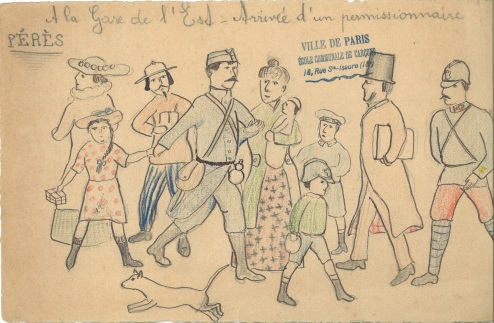 A la Gare de l'Est - Arrivée d'un permissionnaire
PÉRÈS
VILLE DE PARIS
ÉCOLE COMMUNALE DE GARÇONS
18, Rue Ste-Isaure (18e)